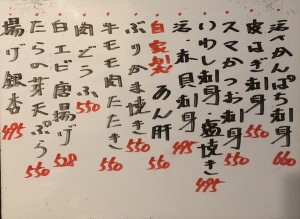 活〆かんぱち刺身 660
皮はぎ刺身 550
スマかつお刺身 550
いわし刺身 塩焼き 495
活 赤貝刺身 660
自家製 あん肝 550
ぶりかま焼き 550
牛モモ肉たたき 550
肉どうふ 550
白エビ唐揚げ 528
たらの芽天ぷら 550
揚げ銀杏 495